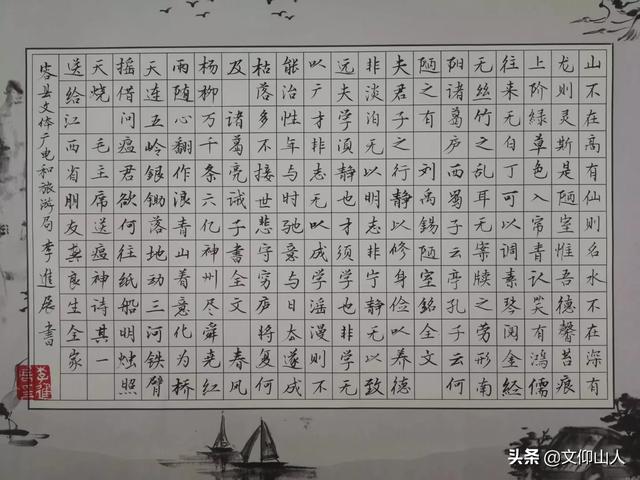 山不在高有仙则名水不在深有
龙则灵斯是陋室惟吾德馨苔痕
上阶绿草色入帘青认笑有鸿儒
往来无白丁可以调素琴阅金经
无丝竹之乱耳无案牍之劳形南
阳诸葛庐西蜀子云亭孔子云何
陋之有 刘禹锡陋室铭全文
夫君子之行静以修身俭以养德
非淡泊无以明志非宁静无以致
远夫学须静也才须学也非学无
以广才非志无以成学滛漫则不
能治性年与时驰意与日去遂成
枯落多不接世悲守穷庐将复何
及 诸葛亮诫子书全文 春风
杨柳万千条六亿神州尽舜尧红
雨随心翻作浪青山着意化为桥
天连五岭银锄落地动三河铁臂
摇借问瘟君欲何往纸船明烛照
天烧 毛主席送瘟神诗其一
送给江西省朋友龚良生全家
容县文体广电和旅游局 李進展書
头条 @文仰山人